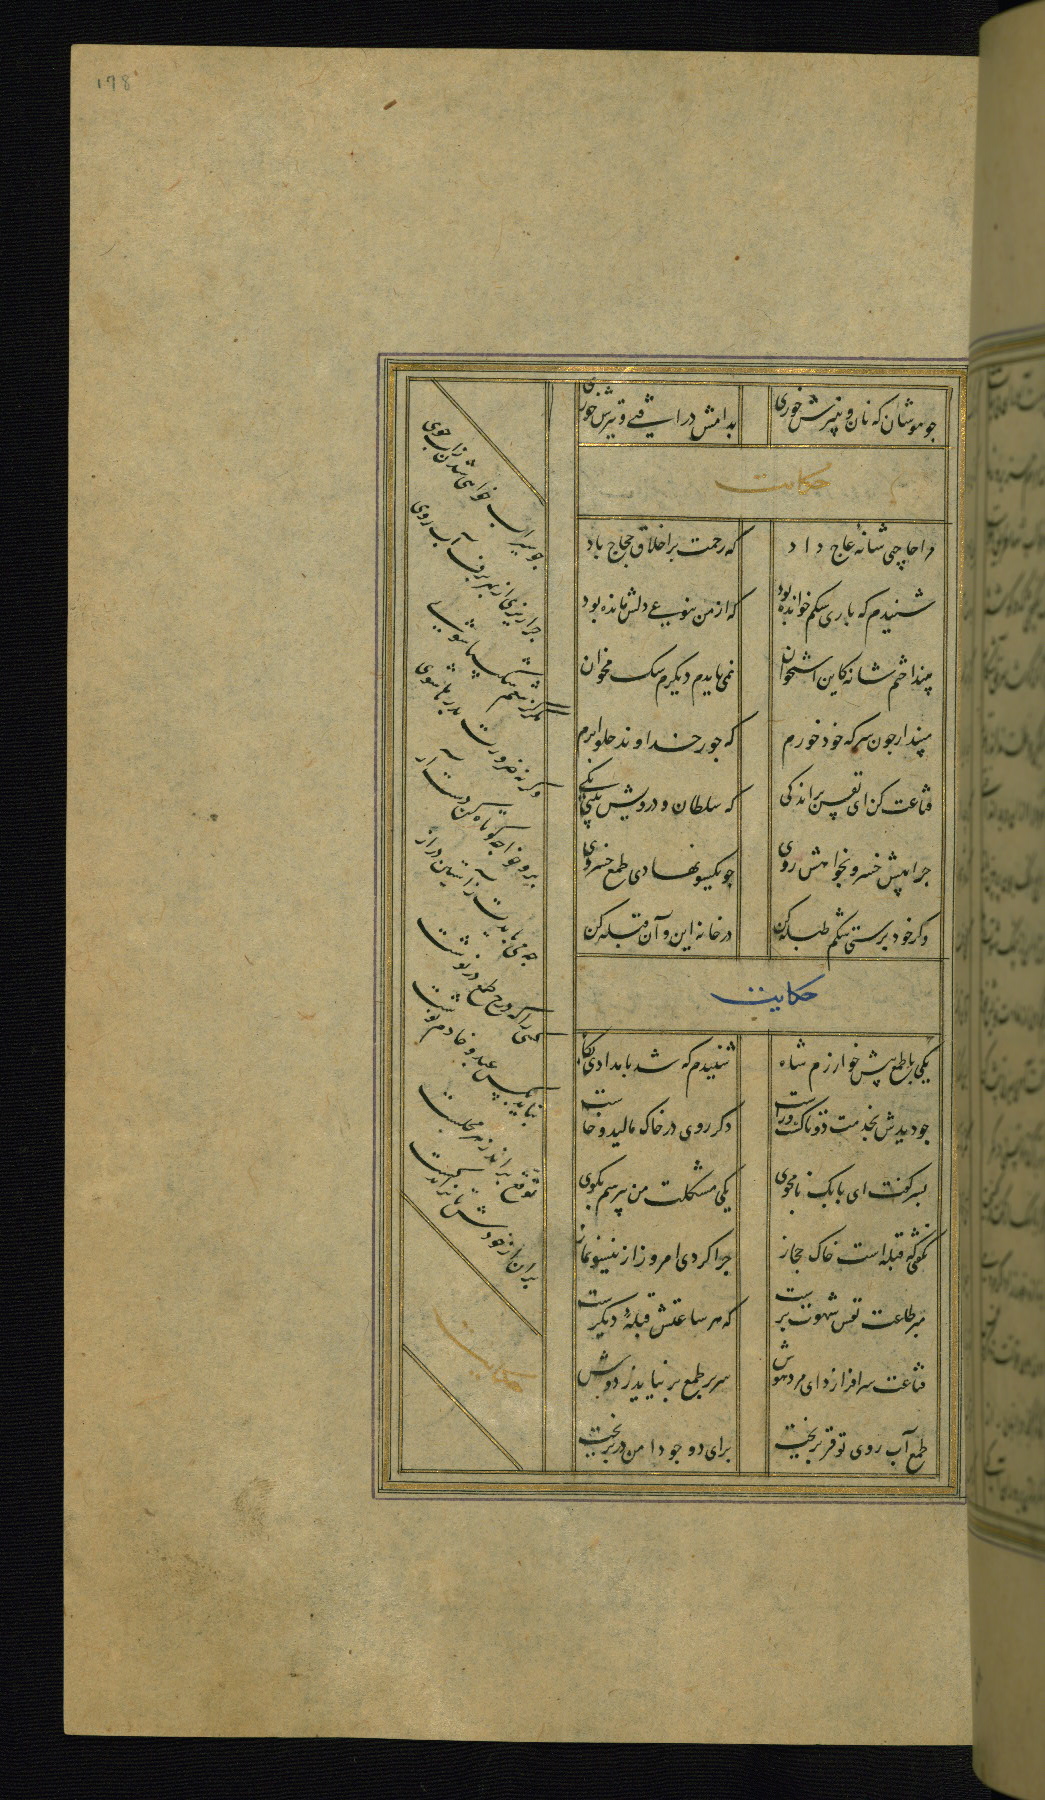 178
چو موشان که نان و پنیرش خوری بدامش درافتی و تیرش خوری
حکایت
مرا حاجیی شانه عاج داد که رحمت بر اخلاق حجاج باد
شنیدم که باری سکم خوانده بود که از من بنوعی دلش مانده بود
بینداختم شانه کاین استخوان نمی بایدم دیکرم سک مخوان
مپندار چون سرکه خود خورم که جور خداوند حلوا برم
قناعت کن ای نفس بر اندکی که سلطان و درویش بینی یکی
چرا پیش خسرو بخواهش روی چو یکسو نهادی طمع خسروی
وکر خود پرستی شکم طبله کن در خانه این و آن قبله کن
حکایت
یکی با طمع پیش خوارزم شاه شنیدم که شد بامدادی پکاه
چو دیدش بخدمت دوتا کشت و راست دکر روی در خاک مالید و خاست
پسر کفت ای بابک نامجوی یکی مشکلت من پرسم بکوی
نکفتی که قبله است خاک حجاز چرا کردی امروز ازین سو نماز
مبر طاعت نفس شهوت پرست که هر ساعتش قبله دیکرست
قناعت سرافرازد ای مرد هوش سر پر طمع بر نیاید ز دوش
طمع آب روی توقر بریخت برای دو جو دامن در بریخت
چو سیراب خواهی شدن ز آب جوی
چرا ریزی از بهر برف آب روی
مکر از تنعم شکیبا شوی
وکرنه ضرورت بدرها شوی
برو خواجه کوتاه کن دست آز
چه می بایدت ز آستین دراز
کسی را که درج طمع درنوشت
نباید بکس عبد و خادم نوشت
توقع براند ز هر مجلست
بران از خودش تا نراند کست
حکایت